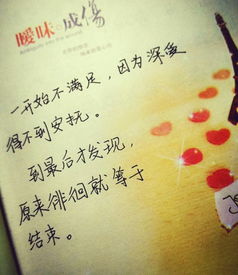 曖昧成傷
一开始不满足，因为深爱
得不到安抚。
到最后才发现，
原来徘徊就等于
结束。